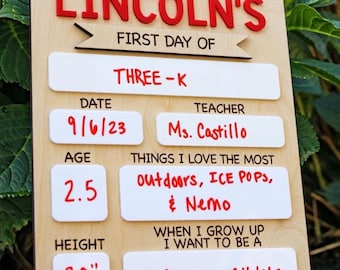 LINCOLN'S
FIRST DAY OF
THREE-K
DATE TEACHER
9/6/23 Ms. Castillo
AGE THINGS I LOVE THE MOST
2.5 Outdoors, ICE POPS,
& Nemo
HEIGHT WHEN I GROW UP
I WANT TO BE A